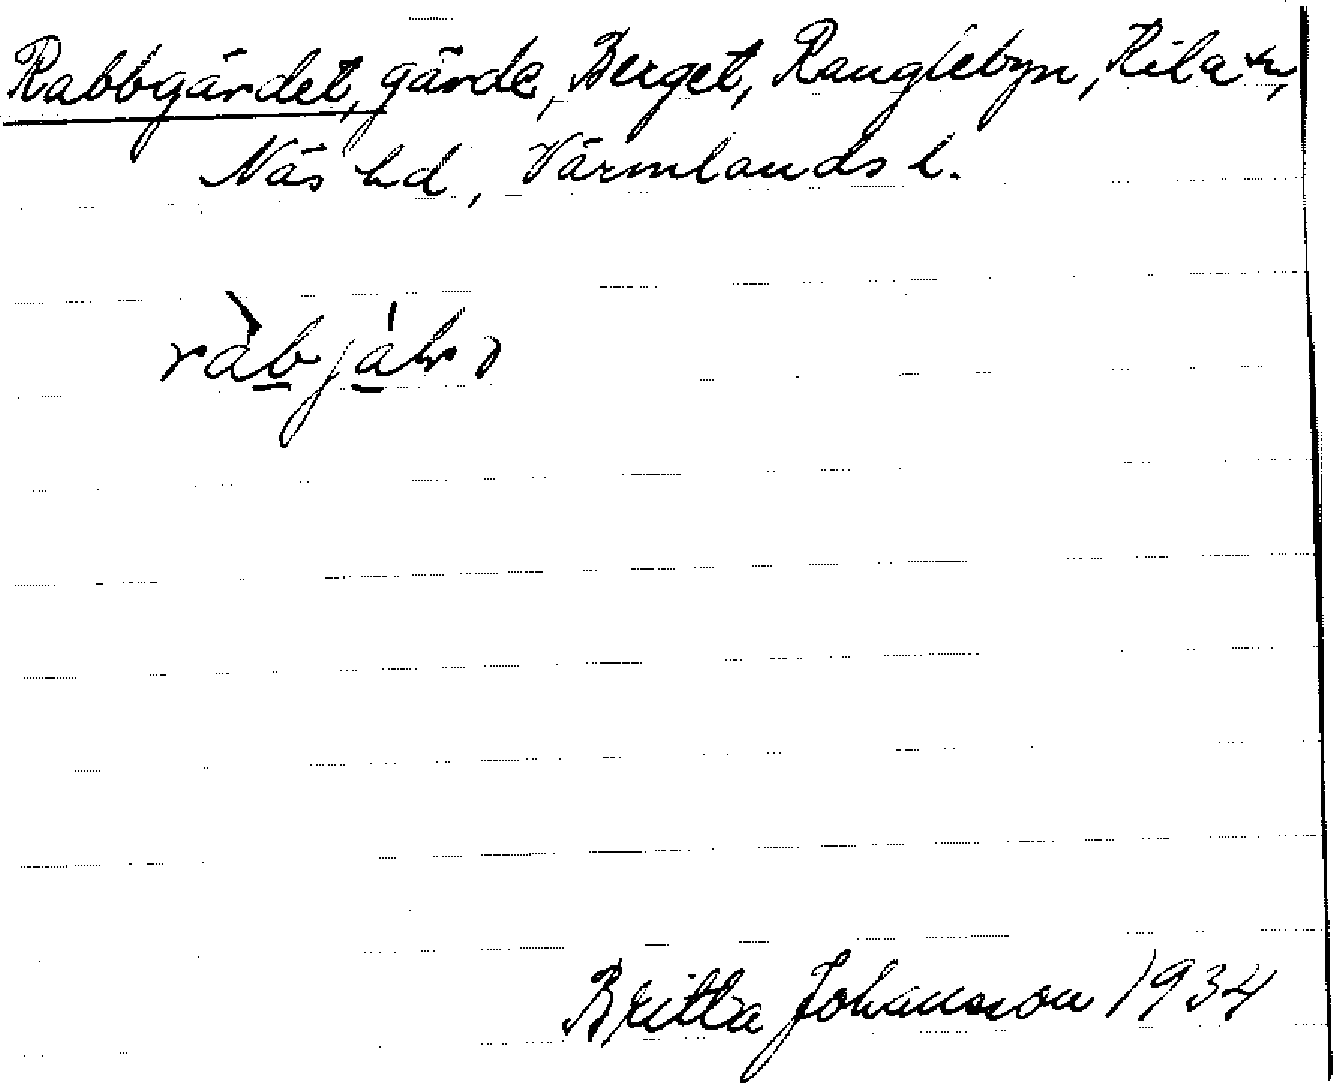 Rabbgärdet, gärde, Berget, Ranglebyn, Kila sn,
Näs hd, Värmlands l.
Britta Johansson 1934